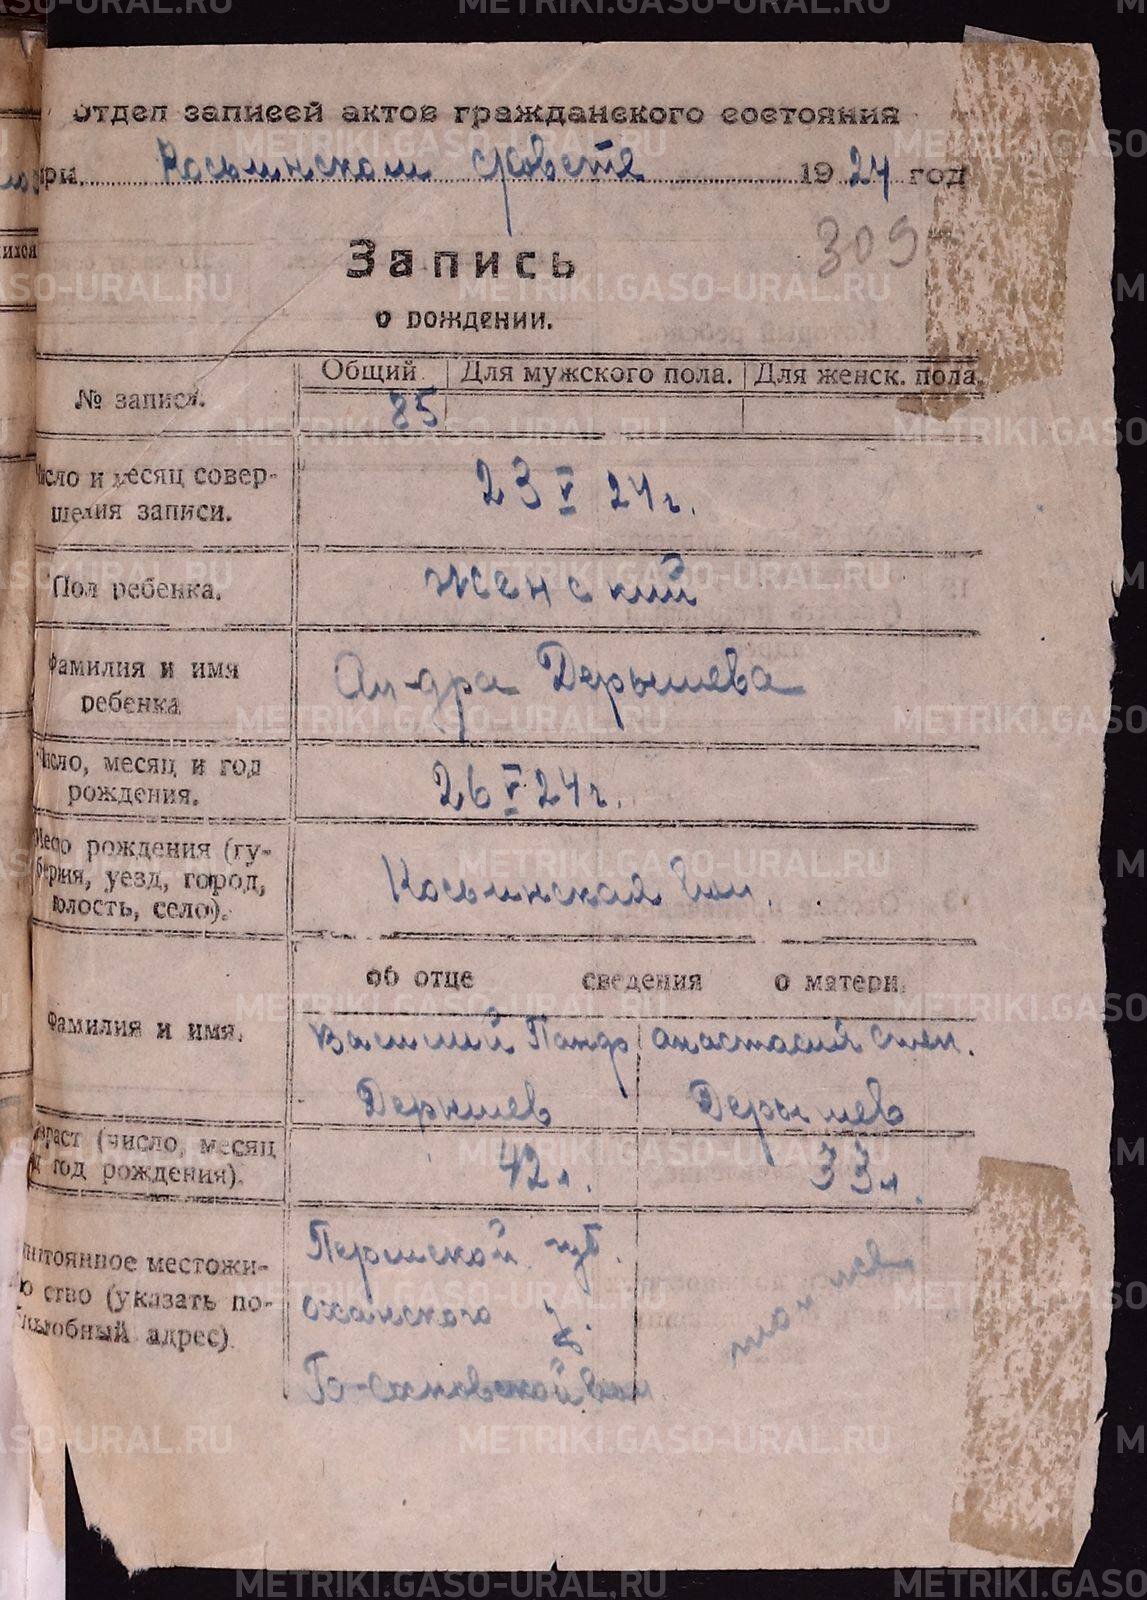 Отдел записей актов гражданского состояния
при Касьинском с/совете 1924 год
309
Запись
о рождении.
№ записи.
Общий
Для мужского пола.
Для женск. пола.
85
Число и месяц совер-
шения записи.
23 V 24 г.
Пол ребенка.
женский
Фамилия и имя
ребенка
Дерышева
Число, месяц и год
рождения.
26 V 24 г.
Место рождения (гу-
берния, уезд, город,
волость, село).
об отце сведения о матери.
Фамилия и имя.
Василий Панф
Анастасия Степ.
Дерышев
Дерышев
Возраст (число, месяц
и год рождения).
42 л.
33 л.
Постоянное местожи-
тельство (указать по-
дробный адрес).
Пермской губ.
Оханского у.
METRIKI.GASO-URAL.RU